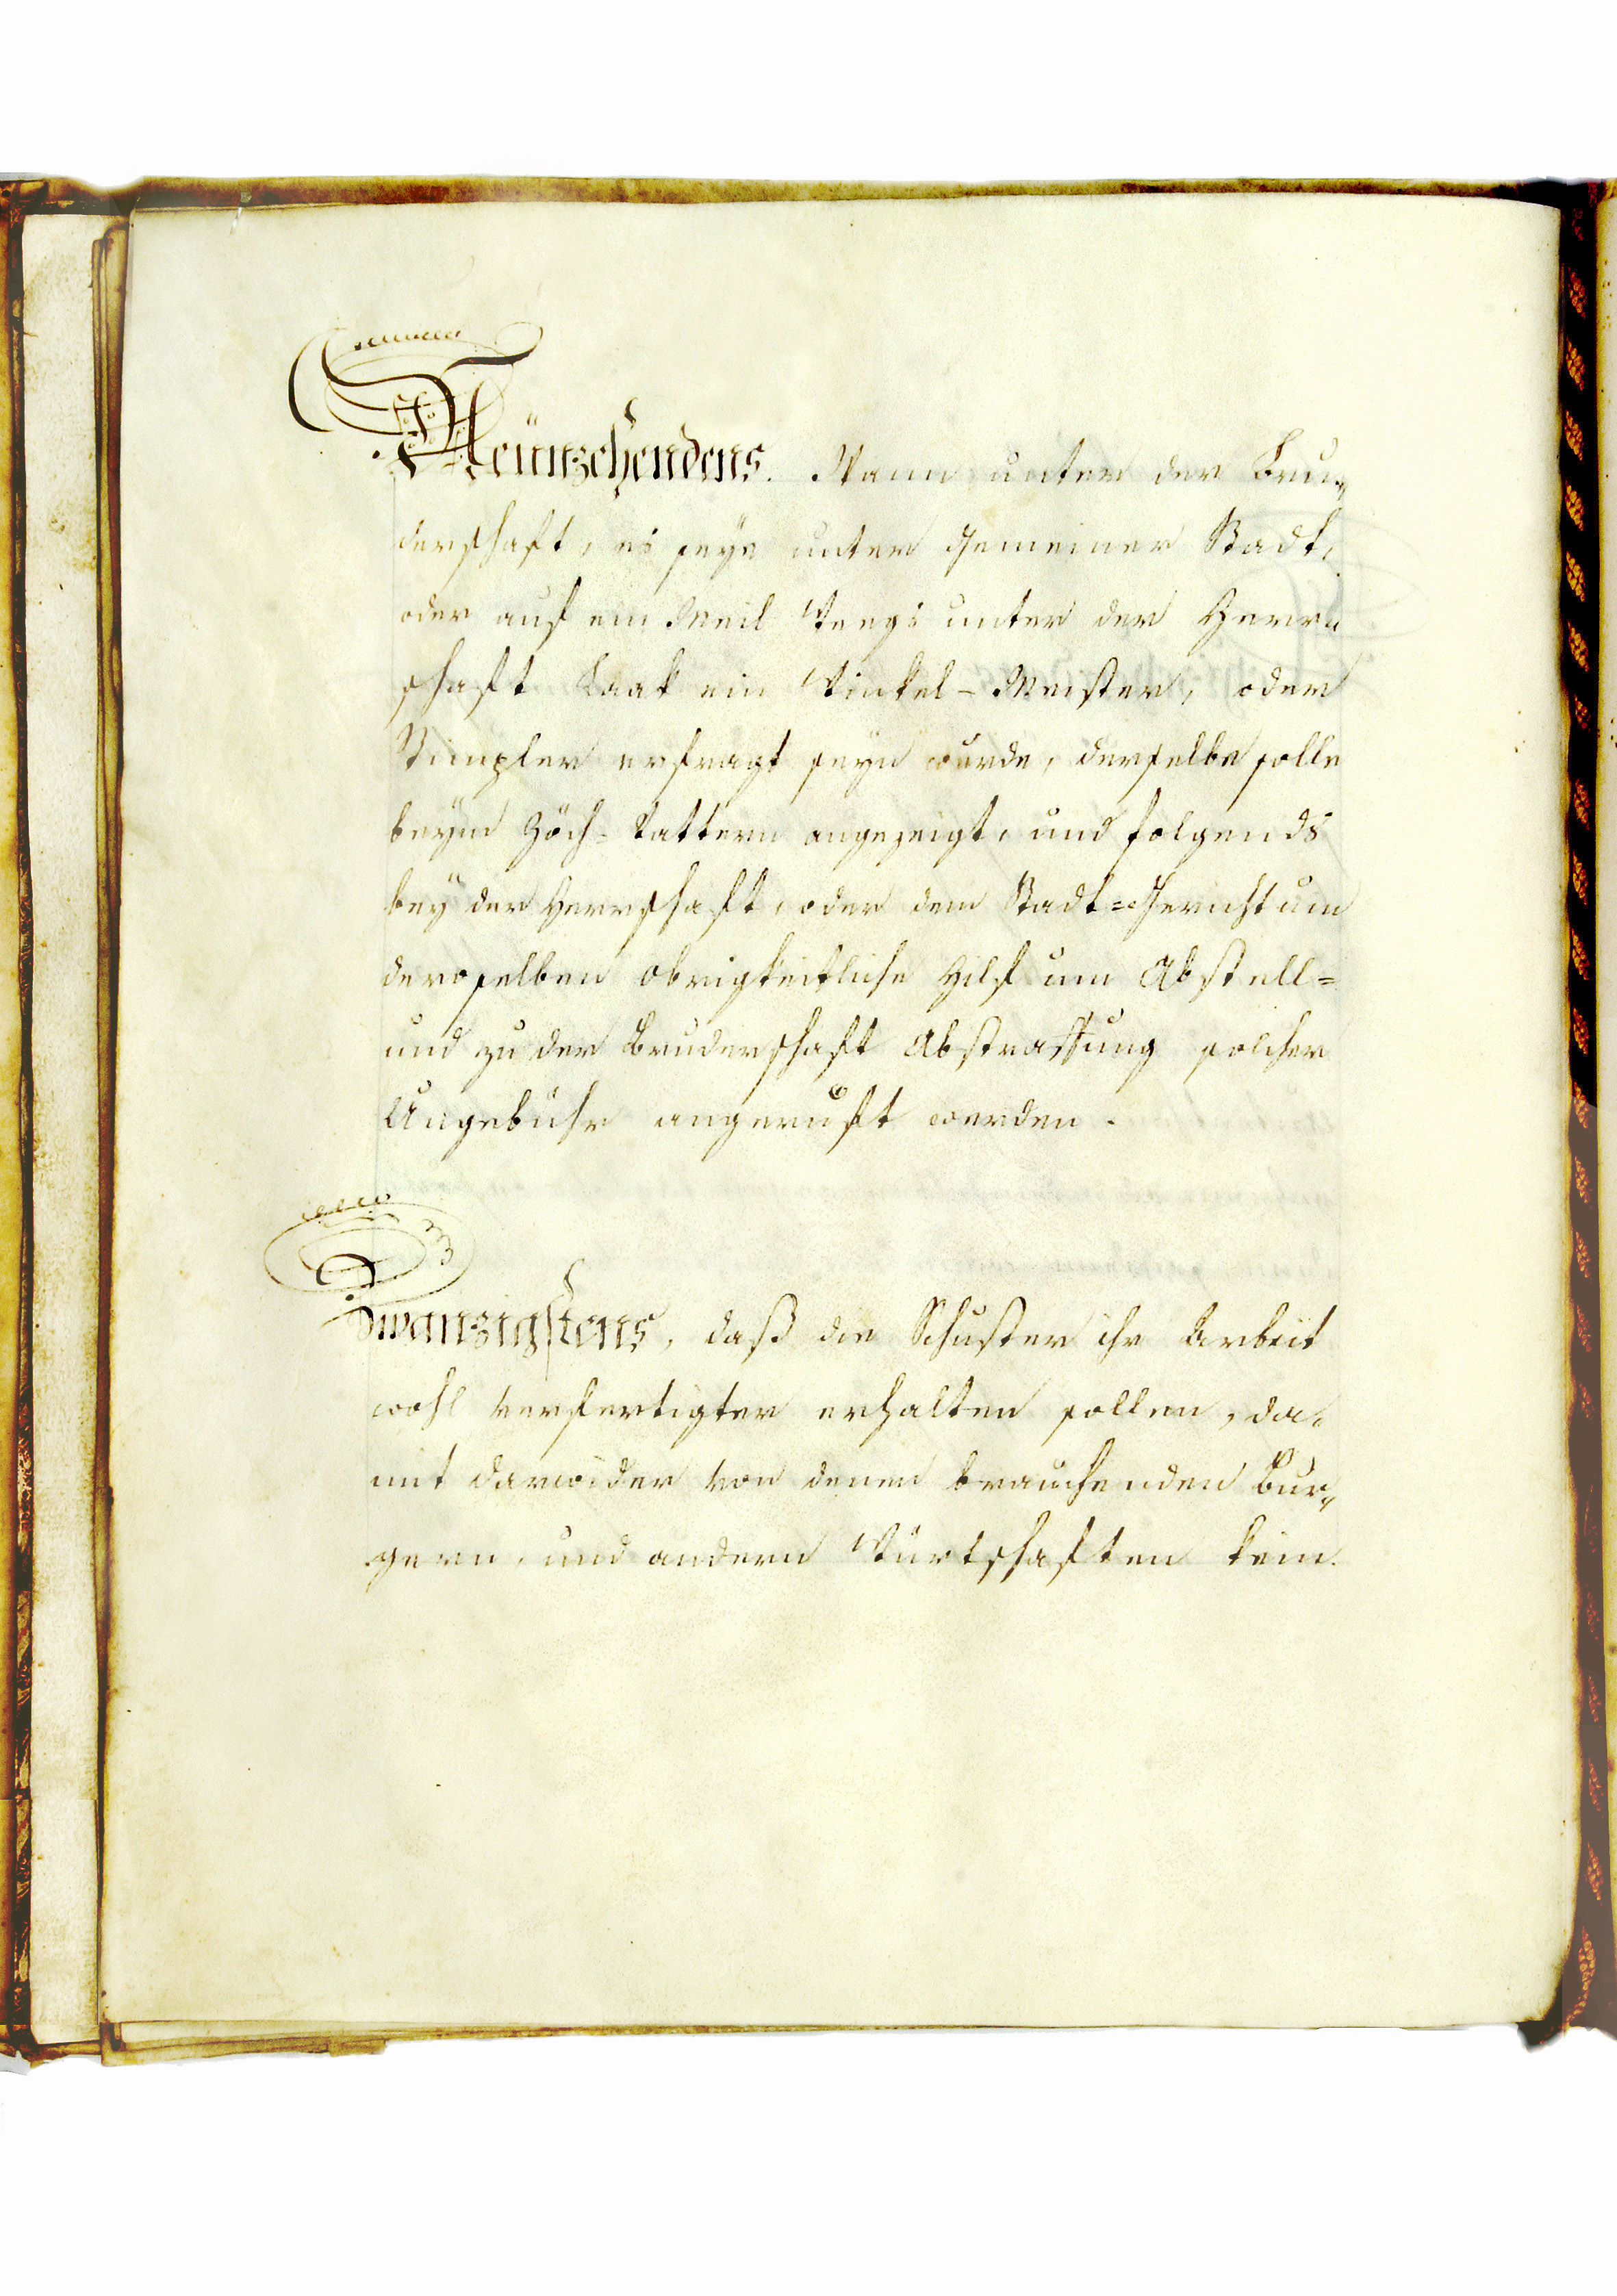 Neünzehendens. Wann unter der Bru„
derschaft, es seye unter gemeiner Stadt,
oder auf ein Meil Weegs unter der Herr„
schaft Laak ein Winkel-Meister, oder
Stimpler erfragt seyn wurde, derselbe solle
beym Zöch-Vattern angezeigt, und folgends
bey der Herrschaft, oder dem Stadt-Gericht um
deroselben obrigkeitliche Hilf um Abstell-
und zu der Bruderschaft Abstraffung solcher
Ungebühr angeruft werden.
Zwanzigstens, daß die Schuster ihr Arbeit
wohl verfertigter erhalten sollen, da„
mit darwider von denen brauchenden Bur„
gern, und andern Würtschaften kein